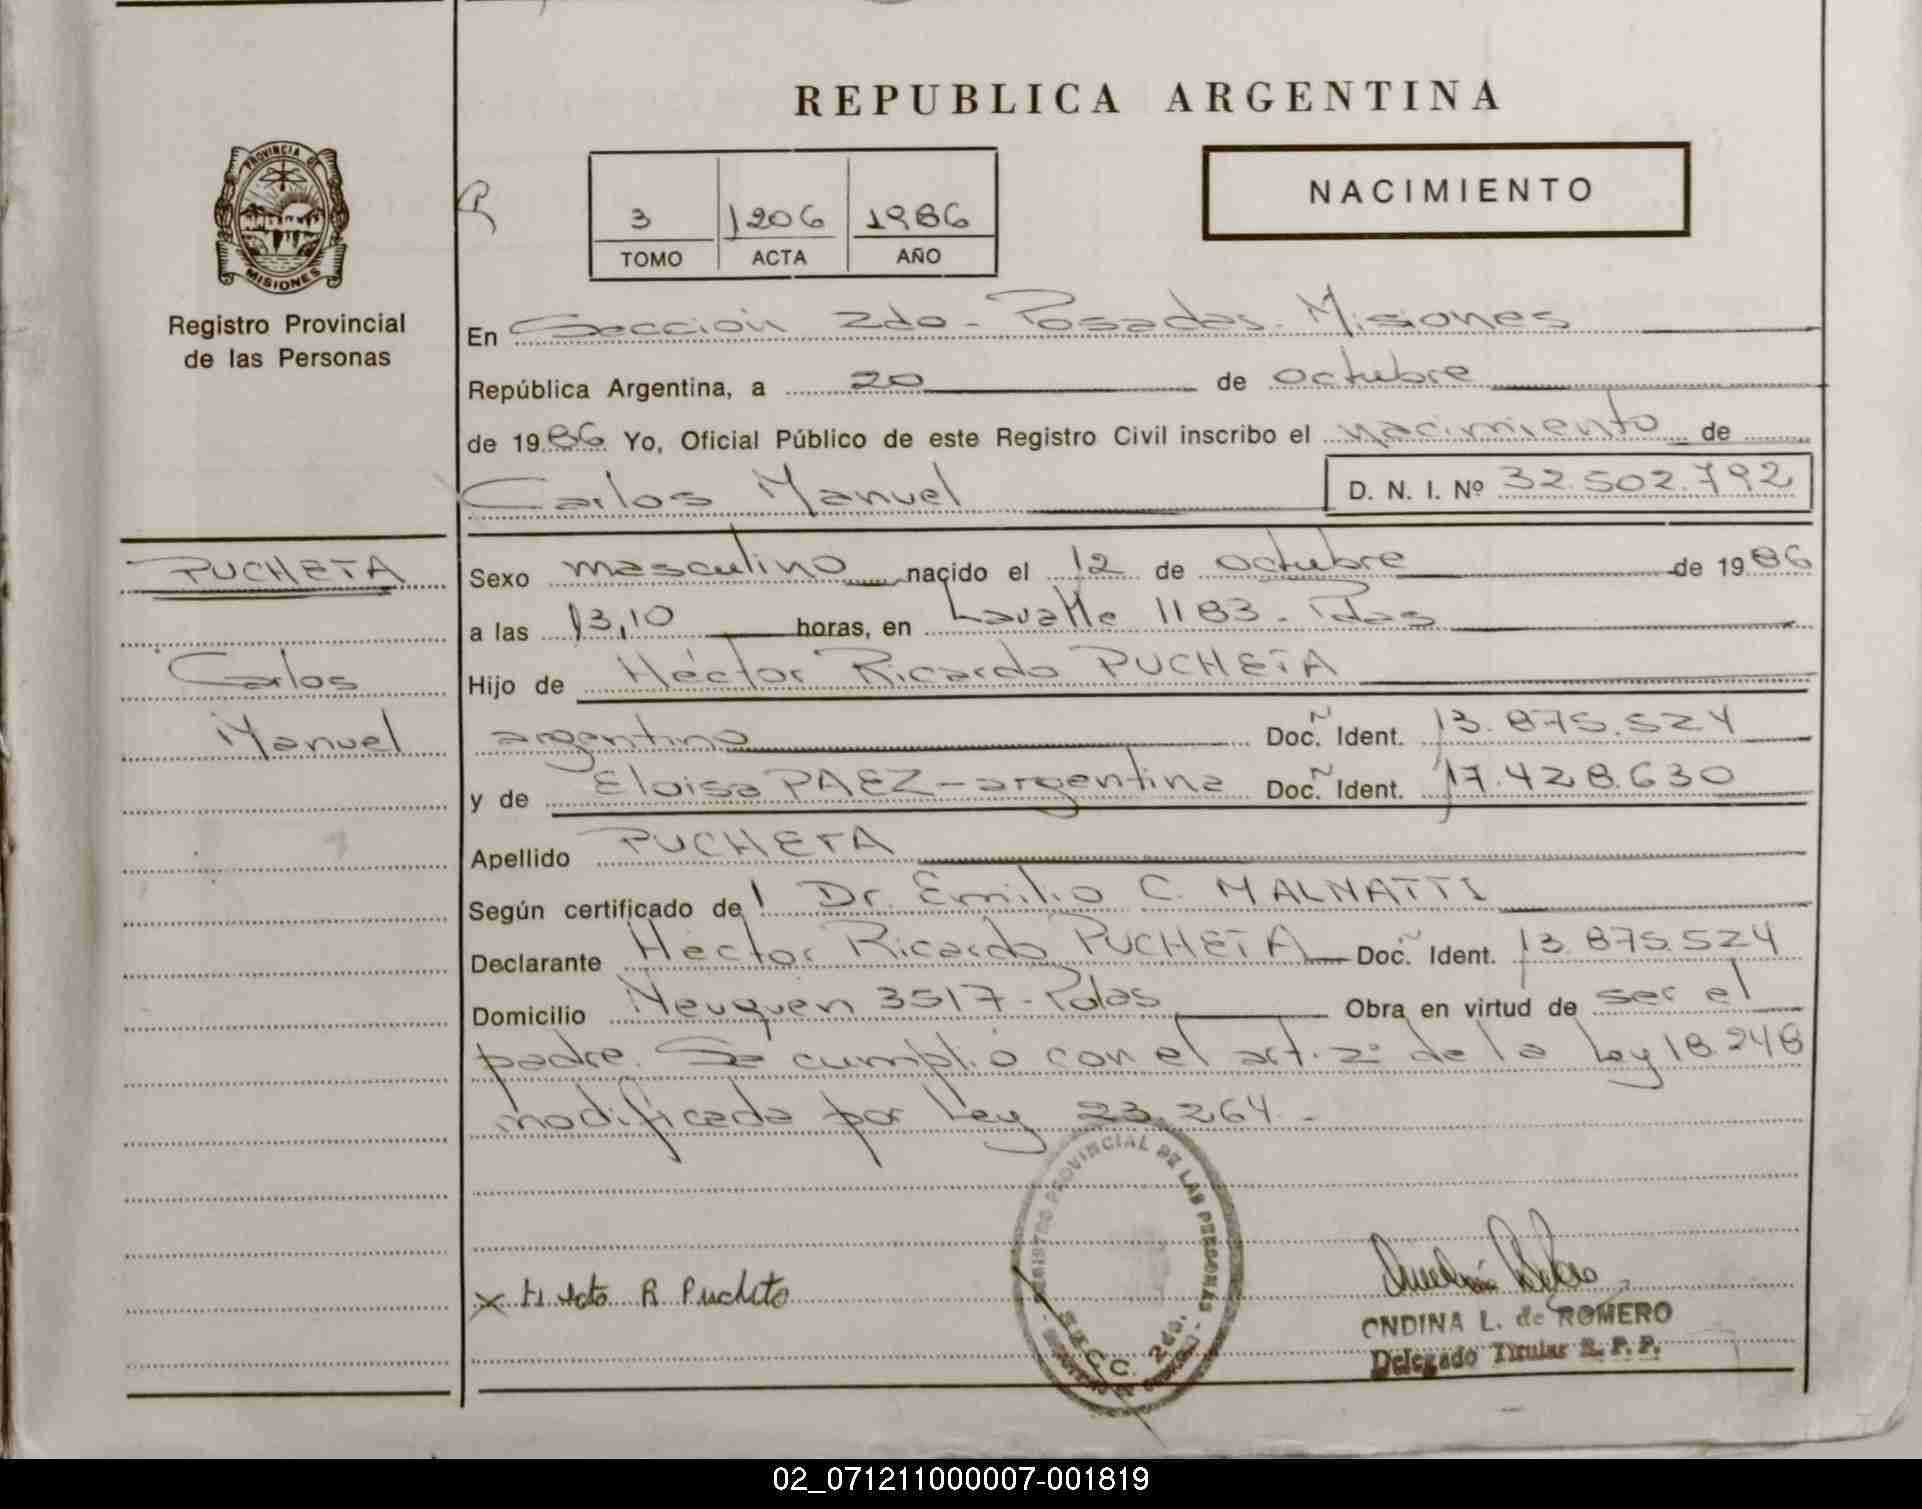 REPUBLICA ARGENTINA
PROVINCIA DE
MISIONES
Registro Provincial
de las Personas
3 1206 1986
TOMO ACTA AÑO
NACIMIENTO
En Sección 2da - Posadas - Misiones
República Argentina, a 20 de octubre
de 1986 Yo, Oficial Público de este Registro Civil inscribo el nacimiento de
Carlos Manuel D. N. I. Nº 32.502.792
PUCHETA
Carlos
Manuel
Sexo masculino nacido el 12 de octubre de 1986
a las 13,10 horas, en Lavalle 1183 - Pdas
Hijo de Héctor Ricardo PUCHETA
argentino Doc. Ident. 13.875.524
y de Eloisa PAEZ - argentina Doc. Ident. 17.428.630
Apellido PUCHETA
Según certificado de Dr. Emilio C. MALNATTI
Declarante Héctor Ricardo PUCHETA Doc. Ident. 13.875.524
Domicilio Neuquén 3517 - Pdas Obra en virtud de ser el
padre. Se cumplió con el art. 2º de la Ley 18.248
modificada por Ley 23.264 -
REGISTRO PROVINCIAL DE LAS PERSONAS
SECC. 2da.
x R Pucheta
ONDINA L. de ROMERO
Delegado Titular R. P. P.
02_071211000007-001819